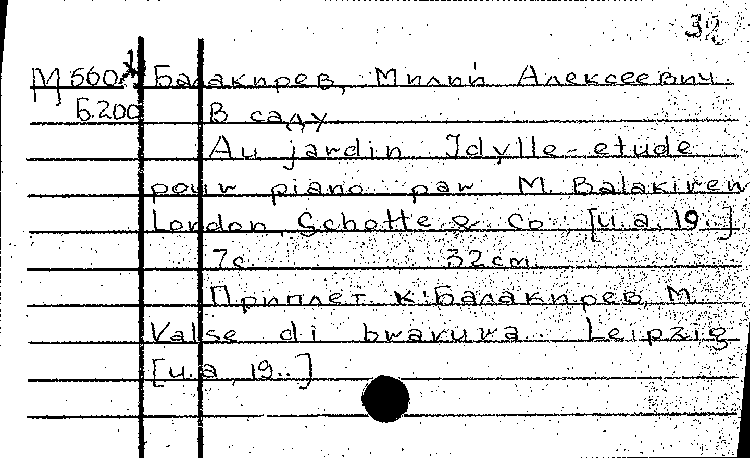 32
М560х Балакирев, Милий Алексеевич.
Б.200 В саду
Au jardin Idylle-etude
pour piano par M. Balakirew
London, Schotte & Co [u.a. 19..]
7с. 32cm.
Приплет. к: Балакирев, М.
Valse di bravura. Leipzig
[u.a, 19..]